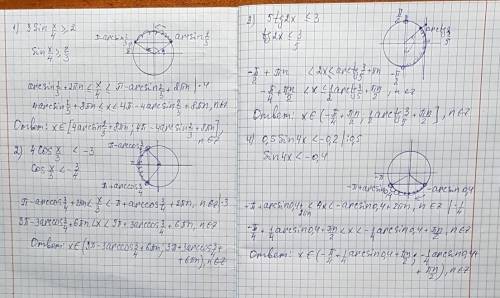 1) 3 sin x/4 ≥ 2
sin x/4 ≥ 2/3
π-arcsin 2/3 arcsin 2/3
arcsin 2/3 + 2πn < x/4 < π - arcsin 2/3 + 2πn | ·4
4arcsin 2/3 + 8πn < x < 4π - 4arcsin 2/3 + 8πn, n∈z
Ответ: x∈[4arcsin 2/3 + 8πn; 4π - 4arcsin 2/3 + 8πn], n∈z
2) 4 cos x/3 < -3
cos x/3 < -3/4
π-arccos 3/4
π+arccos 3/4
π - arccos 3/4 + 2πn < x/3 < π + arccos 3/4 + 2πn, n∈z |·3
3π - 3arccos 3/4 + 6πn < x < 3π + 3arccos 3/4 + 6πn, n∈z
Ответ: x∈(3π - 3arccos 3/4 + 6πn, 3π + 3arccos 3/4 +
+ 6πn), n∈z
3) 5 tg 2x ≤ 3
tg 2x ≤ 3/5
π/2
arctg 3/5
-π/2
-π/2 + πn < 2x < arctg 3/5 + πn
-π/4 + πn/2 < x < 1/2 arctg 3/5 + πn/2, n∈z
Ответ: x∈(-π/4 + πn/2, 1/2 arctg 3/5 + πn/2], n∈z
4) 0,5 sin 4x < -0,2 |:0,5
sin 4x < -0,4
-π+arcsin 0,4 -arcsin 0,4
-π + arcsin 0,4 + 2πn < 4x < -arcsin 0,4 + 2πn, n∈z | ·1/4
-π/4 + 1/4 arcsin 0,4 + πn/2 < x < -1/4 arcsin 0,4 + πn/2, n∈z
Ответ: x∈(-π/4 + 1/4 arcsin 0,4 + πn/2; -1/4 arcsin 0,4 +
+ πn/2), n∈z